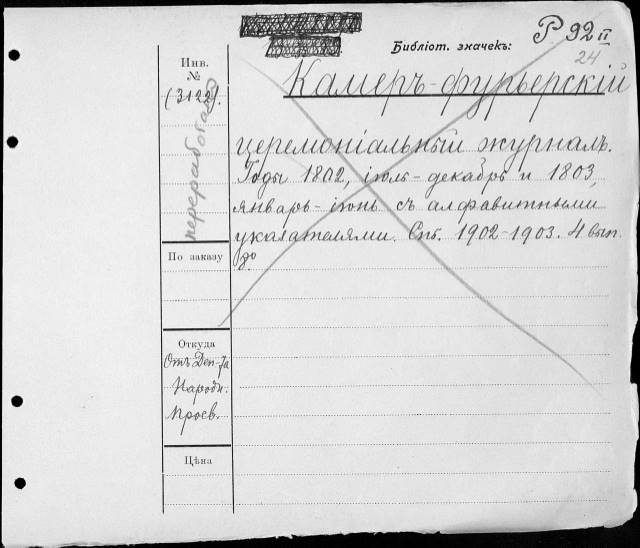 Библіот. значекъ: Р 92 II
24
Инв.
№
(3122).
переработано
Камеръ-фурьерскій
церемоніальный журналъ.
Годы 1802, іюль-декабрь и 1803,
январь-іюнь съ алфавитными
указателями. Спб. 1902-1903. 4 вып.
8°
По заказу
Откуда
Отъ Деп-та
Народн.
Просв.
Цѣна